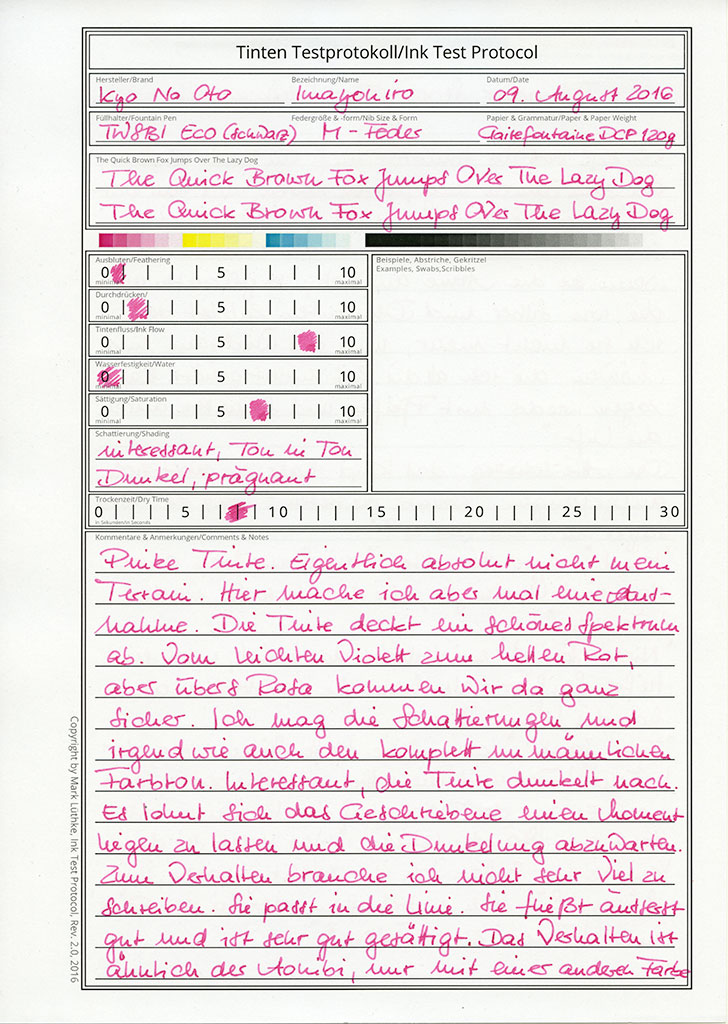 Tinten Testprotokoll/Ink Test Protocol
Hersteller/Brand Bezeichnung/Name Datum/Date
Kyo No Oto Imayohiro 09. August 2016
Füllhalter/Fountain Pen Federgröße & -form/Nib Size & Form Papier & Grammatur/Paper & Paper Weight
TWSBI Eco (schwarz) M - Feder Clairefontaine DCP 120g
The Quick Brown Fox Jumps Over The Lazy Dog
The Quick Brown Fox Jumps Over The Lazy Dog
The Quick Brown Fox Jumps Over The Lazy Dog
Ausbluten/Feathering
0 5 10
minimal maximal
Durchdrücken/
0 5 10
minimal maximal
Tintenfluss/Ink Flow
0 5 10
minimal maximal
Wasserfestigkeit/Water
0 5 10
minimal maximal
Sättigung/Saturation
0 5 10
minimal maximal
Schattierung/Shading
interessant, Ton in Ton
Dunkel, prägnant
Beispiele, Abstriche, Gekritzel
Examples, Swabs,Scribbles
Trockenzeit/Dry Time
0 5 10 15 20 25 30
in Sekunden/in Seconds
Kommentare & Anmerkungen/Comments & Notes
Pinke Tinte. Eigentlich absolut nicht mein
Terrain. Hier mache ich aber mal eine Aus-
nahme. Die Tinte deckt ein schönes Spektrum
ab. Vom leichten Violett zum hellen Rot,
aber übers Rosa kommen wir da ganz
sicher. Ich mag die Schattierungen und
irgendwie auch den komplett unmännlichen
Farbton. Interessant, die Tinte dunkelt nach.
Es lohnt sich das Geschriebene einen Moment
liegen zu lassen und die Dunkelung abzuwarten.
Zum Verhalten brauche ich nicht sehr viel zu
schreiben. Sie passt in die Linie. Sie fließt äusserst
gut und ist sehr gut gesättigt. Das Verhalten ist
ähnlich der Aonibi, nur mit einer anderen Farbe
Copyright by Mark Lüthke, Ink Test Protocol, Rev. 2.0, 2016